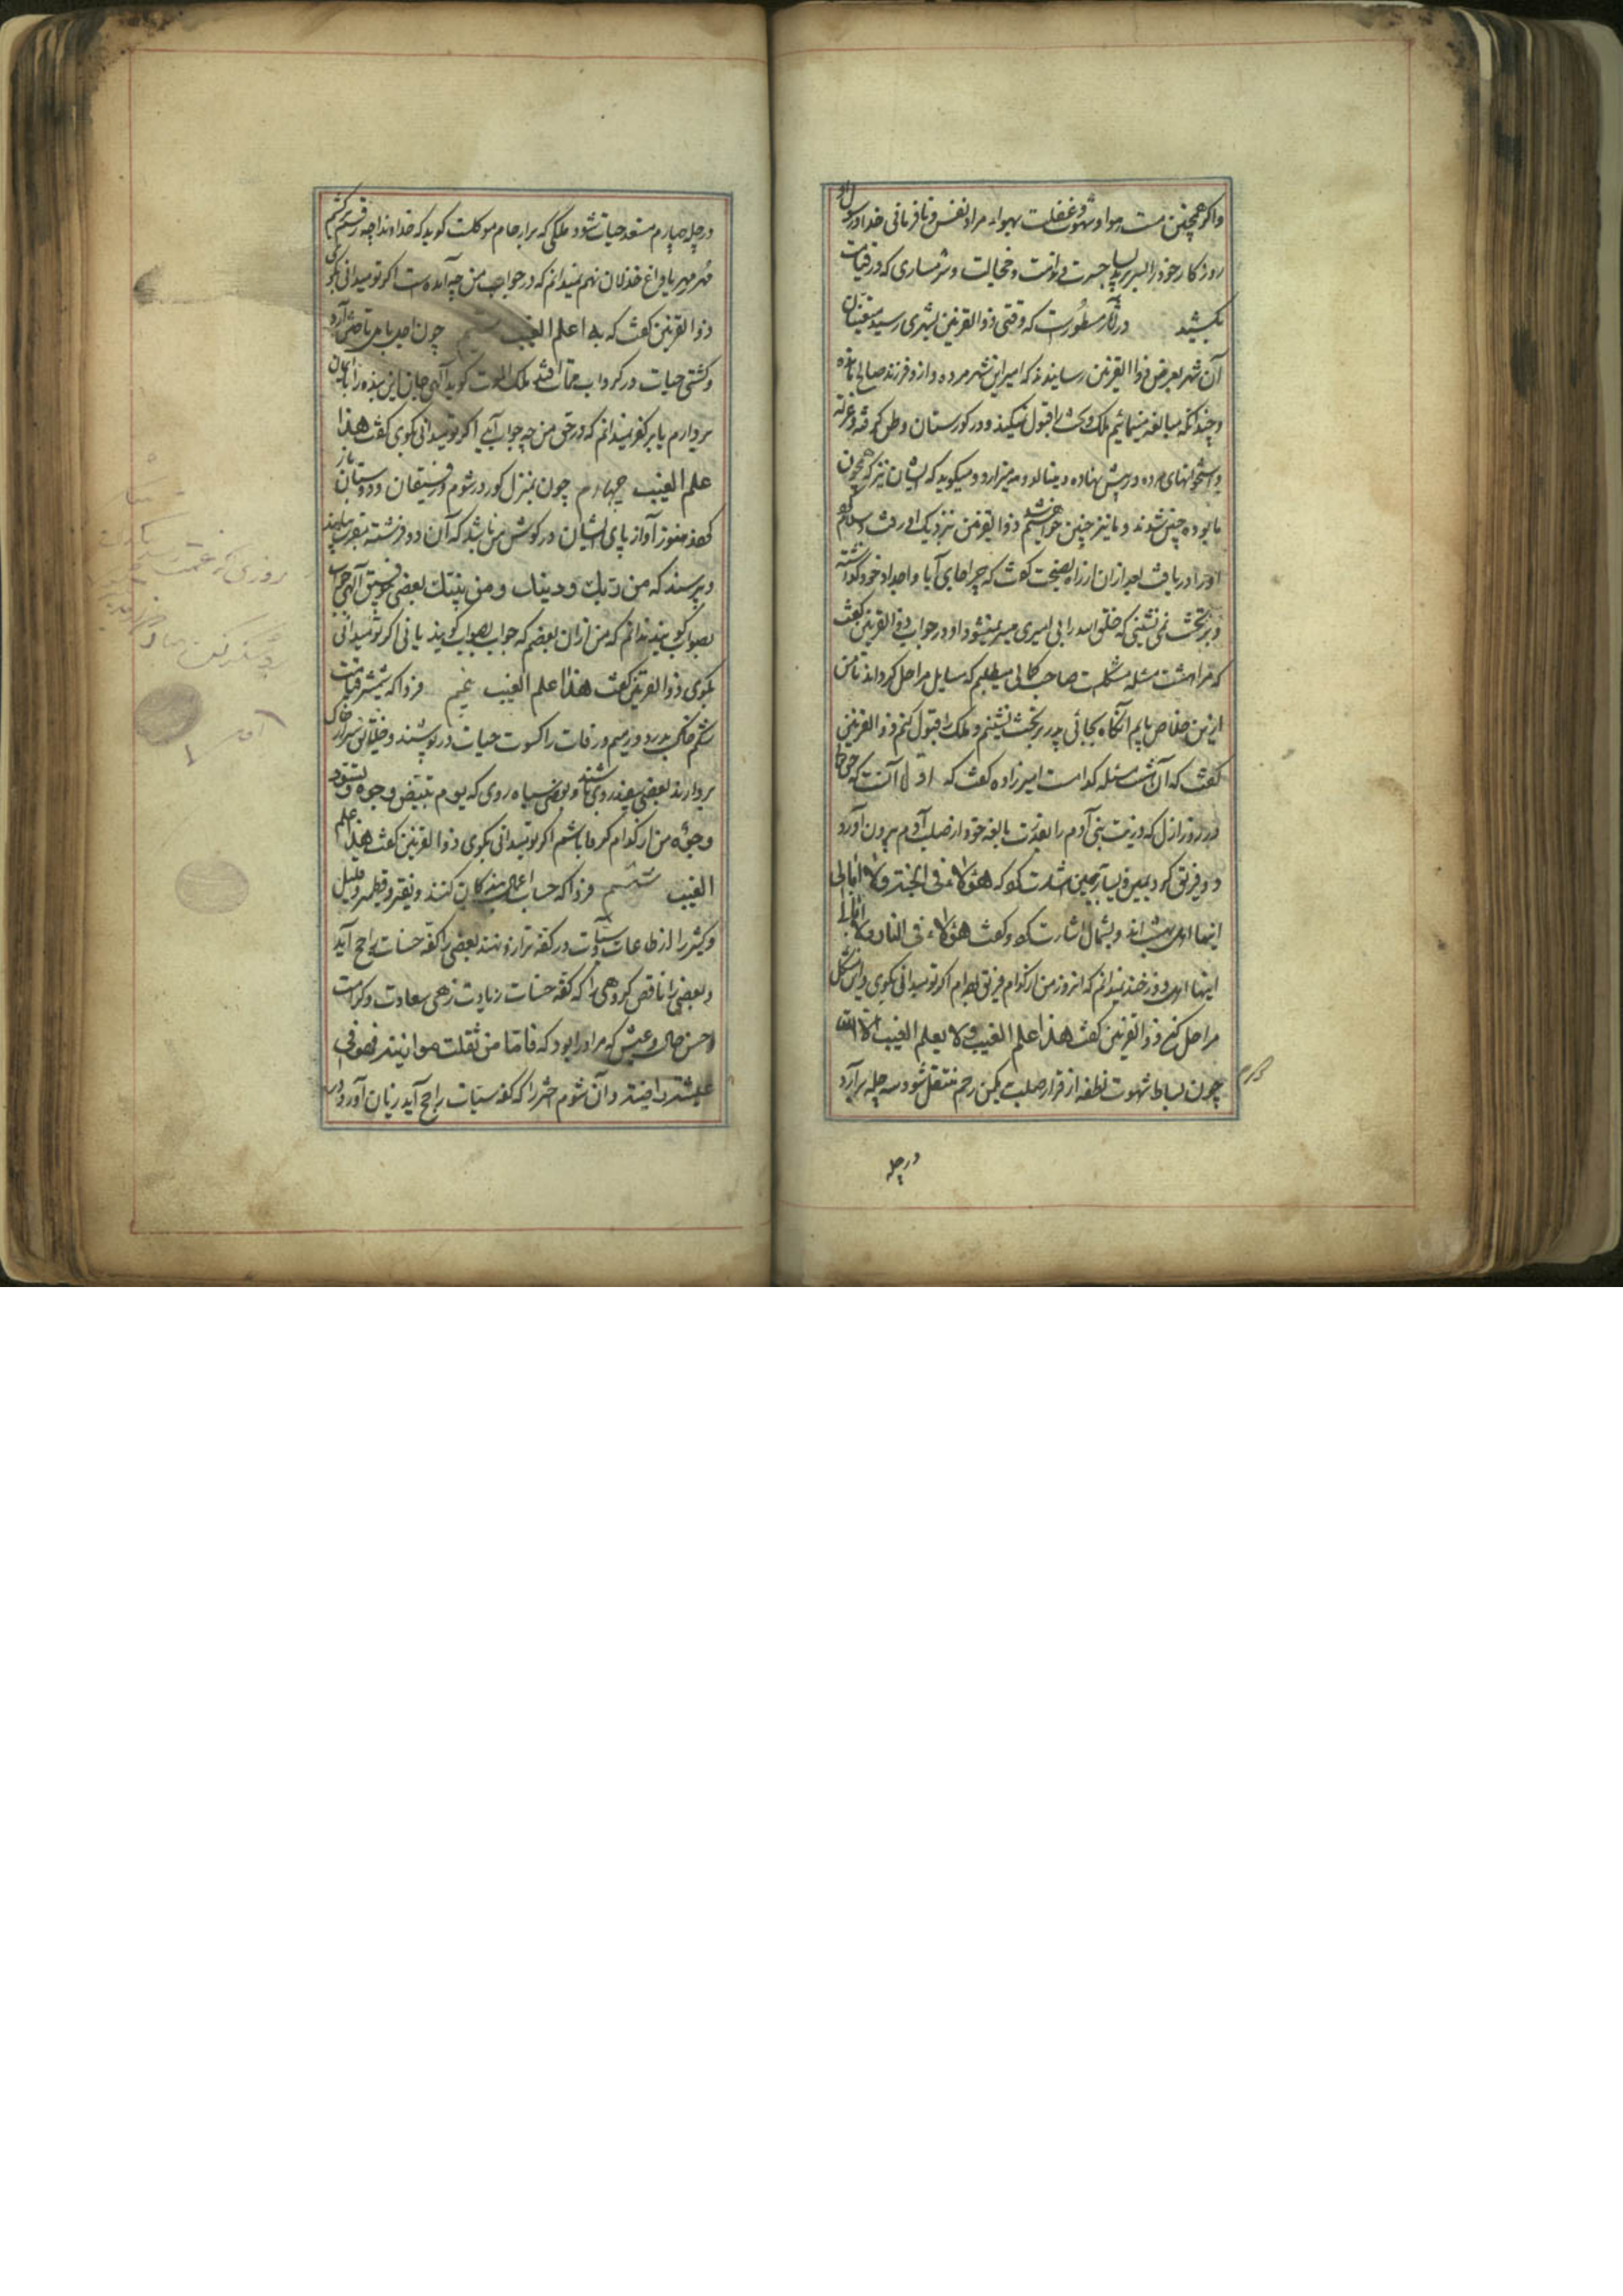 واکر همچنین مست هوا و شهوت و غفلت بهواء مراد نفس و نافرمانی خدا و رسول او
روزکار خود را بسر برید بسیار حسرت و ندامت و خجالت و شرمساری که در قیامت
بکشید در آثار مسطورست که وقتی ذوالقرنین بشهری رسید متعینان
آن شهر بعرض ذوالقرنین رسانیدند که امیر این شهر مرده و ازو فرزند صالح مانده
و چندانکه مبالغه مینمائیم ملک و تخت را قبول نمیکند و در کورستان وطن کرفته و
و استخوانهای مرده در پیش نهاده و مینالد و میزارد و میکوید که ایشان نیز که همچون
ما بوده چنین شدند و ما نیز چنین خواهیم شد ذوالقرنین نزدیک او رفت و سلام
او را دریافت بعد ازان از راه نصیحت کفت که چرا جای آبا و اجداد خود کذاشته
و بر تخت نمی نشینی که خلق الله را بی امیری میسر نمیشود او در جواب ذوالقرنین کفت
که مرا هشت مسئله مشکلست صاحب کمالی میطلبم که مسایل مرا حل کرداند تا من
ازین خلاص یابم آنکاه بجائی پدر بر تخت نشینم و ملک را قبول کنم ذوالقرنین
کفت که آن هشت مسئله کدامست امیرزاده کفت که اول آنست که حق تعالی
در روز ازل که ذریت بنی آدم را بقدرت بالغه خود از صلب آدم بیرون آورد
و دو فریق کرد یمین و یسار بیمین اشارت کرد که هؤلاء فی الجنة ولا ابالی
اینها اهل بهشت اند و بشمال اشارت کرد و کفت هؤلاء فی النار ولا ابالی
اینها اهل دوزخند نمیدانم که انروز من از کدام فریق بوده ام اکر تو میدانی بکوی و این مشکل
مرا حل کن ذوالقرنین کفت هذا علم الغیب و لا یعلم الغیب الا الله
چون بساط شهوت نطفه از قرار صلب بمکمن رحم منتقل شود سه چله برآرد
در چله
در چله چهارم مستعد حیات شود ملکی که بر ارحام موکلست کوید که خداوندا چه
مهر مهر یا داغ خذلان نهم نمیدانم که در جواب من چه آمده است اکر تو میدانی بکوی
ذوالقرنین کفت که هذا علم الغیب سیم چون اجل
و کشتی حیات در کرداب ممات افتد ملک الموت کوید الهی جان این بنده را بایمان
بردارم یا بر کفر نمیدانم که در حق من چه جواب آید اکر تو میدانی بکوی کفت هذا
علم الغیب چهارم چون بمنزل کور در شوم و رفیقان و دوستان باز
کردند هنوز آواز پای ایشان در کوش من باشد که آن دو فرشته بقبر بیایند
و بپرسند که من ربک و دینک و من نبیک بعضی بتوفیق الهی جواب
بصواب کویند ندانم که من ازان بعضم که جواب بصواب کویند یا نی اکر تو میدانی
بکوی ذوالقرنین کفت هذا علم الغیب پنجم فردا که شمشیر قیامت
شکم خاک بدرد و رمیم رفات را کسوت حیات در پوشند و خلایق سر از خاک
بردارند بعضی سفید روی باشند و بعضی سیاه روی که یوم تبیض وجوه و تسود
وجوه من از کدام کروه باشم اکر تو میدانی بکوی ذوالقرنین کفت هذا علم
الغیب ششم فردا که حساب اعمال کنند و نقیر و قطمیر و قلیل
و کثیر را از طاعات و سیئات در کفه ترازو نهند بعضی را کفه حسنات راجح آید
و بعضی را ناقص کروهی را که کفه حسنات زیادت زهی سعادت و کرامت
و حسن حال و عیش که مر او را بود که فاما من ثقلت موازینه فهو فی
عیشة راضیة و آن شوم حشر را که کفه سیئات راجح آید زیان آورد